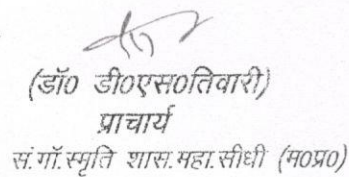 (डॉ० डी०एस०तिवारी)
प्राचार्य
सं.गाँ.स्मृति शास.महा.सीधी (म०प्र०)